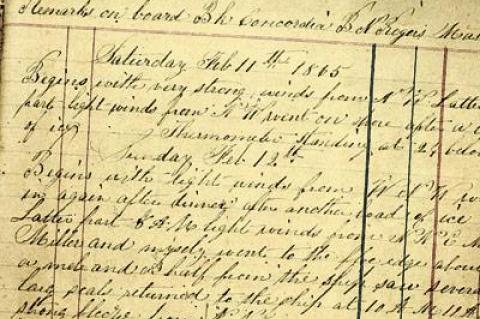 Remarks on board Bk Concordia
Saturday Feb 11th 1865
Begins with very strong winds from N W Latter
part light winds from N W went on shore after a
of ice Thermometer Standing at 24 below
Sunday Feb 12th
Begins with light winds from W N W
ing again after dinner after another load of ice
Latter part 8 A M light winds from N W
Miller and myself went to the floe edge about
a mile and a half from the ship saw several
large seals returned to the ship at 10 A M
strong